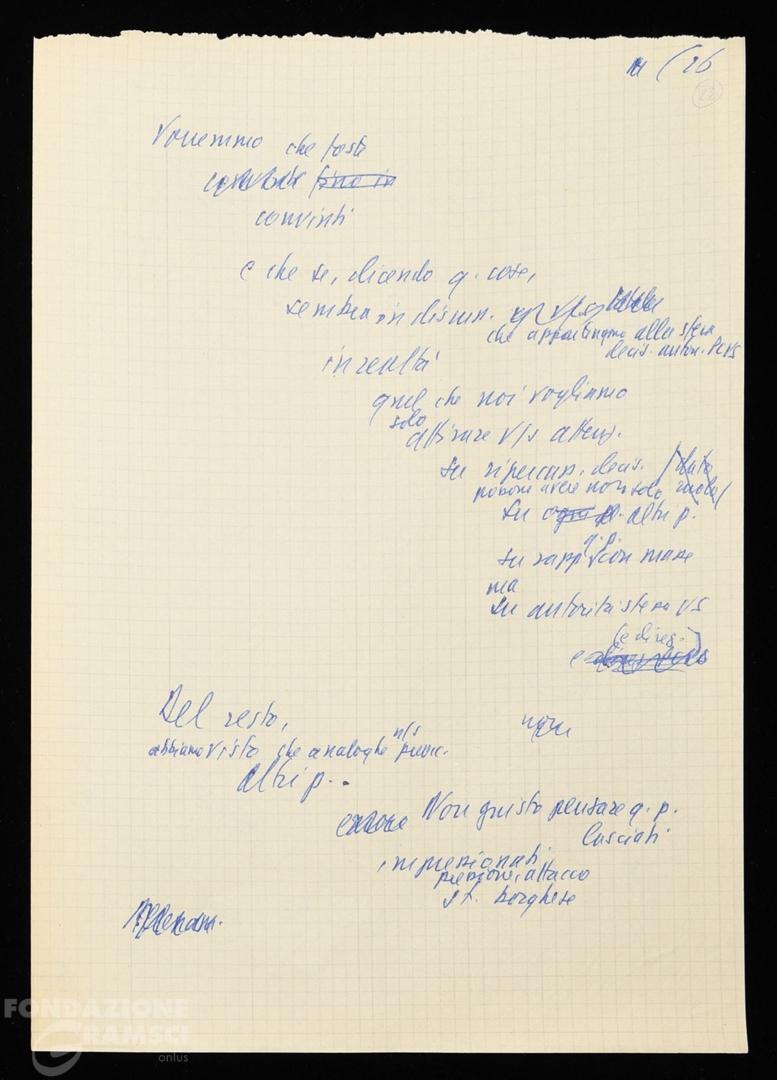 26
22
Vorremmo che foste
fino in
convinti
e che se, dicendo q. cose,
sembra in discuss.
che appartengono alla sfera
decis. auton. PCUS
in realtà
quel che noi vogliamo
solo
attirare v/s attenz.
su ripercuss. decis.
possono avere non solo
su altri p.
q.p.
su rapp con masse
ma
su autorità stessa VS
(e direz.)
e
Del resto,
n/s
abbiamo visto che analoghe preocc.
altri p.
Non giusto pensare q. p.
lasciati
impressionati
pressione, attacco
st. borghese
FONDAZIONE
GRAMSCI
onlus